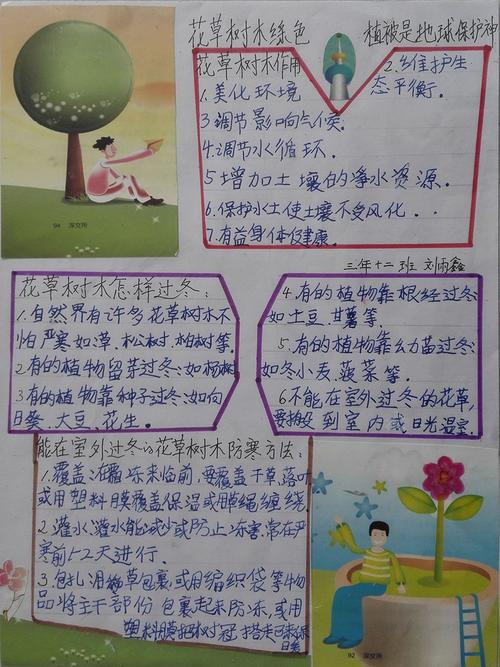 花草树木绿色 植被是地球保护神
花草树木作用
1.美化环境
2.维护生
态平衡.
3调节影响气候.
4.调节水循环.
5增加土壤的净水资源.
6.保护水土使土壤不受风化..
7.有益身体促健康.
三年十二班 刘雨鑫
花草树木怎样过冬:
1.自然界有许多花草树木不
怕严寒如草.松树.柏树等.
2有的植物留芽过冬:如杨树
3有的植物靠种子过冬:如向
日葵、大豆、花生.
4.有的植物靠根经过冬:
如土豆.甘薯等.
5.有的植物靠幼苗过冬:
如冬小麦.菠菜等.
6不能在室外过冬的花草,
要搬到室内或日光温室.
能在室外过冬的花草树木防寒方法:
1.覆盖:在霜冻来临前,要覆盖干草.落叶
或用塑料膜覆盖保温或用绳缠绕.
2.灌水.灌水能减少或防止冻害.常在严
寒前1-2天进行.
3.包扎:用草包裹,或用编织袋等物
品,将主干部份包裹起来防冻,或用
塑料膜把树冠搭来保
暖
94 深交所
92 深交所